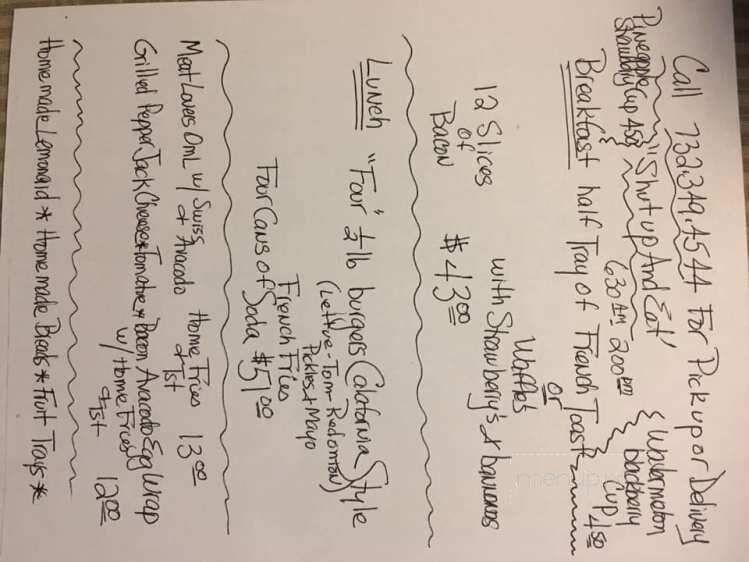 Call 732.349.4544 For Pickup or Delivery
Pineapple
Strawberry Cup 450
"Shut up And Eat"
630 AM 200 pm
Watermelon
blackberry
Cup 450
Breakfast half Tray of French Toast
or
Waffles
12 Slices
of
Bacon
with Strawberry's & bananas
$43.00
Lunch "Four" 1/2 lb burgers California Style
(Lettuce-Tom-Redonion)
Pickles + Mayo
French Fries
Four Cans of Soda $51.00
Meat Lovers Oml w/ Swiss
+ Avacado
Home Fries
+ Tst
13.00
Grilled Pepper Jack Cheese * Tomatoe * Bacon Avacado Egg Wrap
w/ Home Fries
+ Tst
12.00
Homemade Lemonaid * Homemade Breads * Fruit Trays *